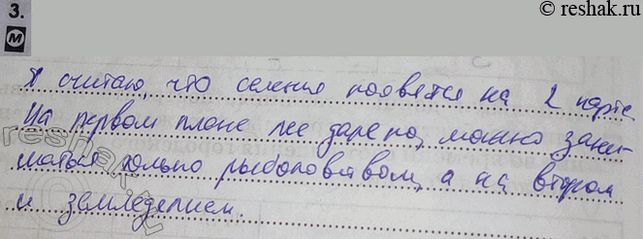 © reshak.ru
3.
М
Я считаю, что селения появятся на 2 карте
На первом плане лес далеко, можно зани-
маться только рыболовством, а на втором
и земледелием.
reshak.ru